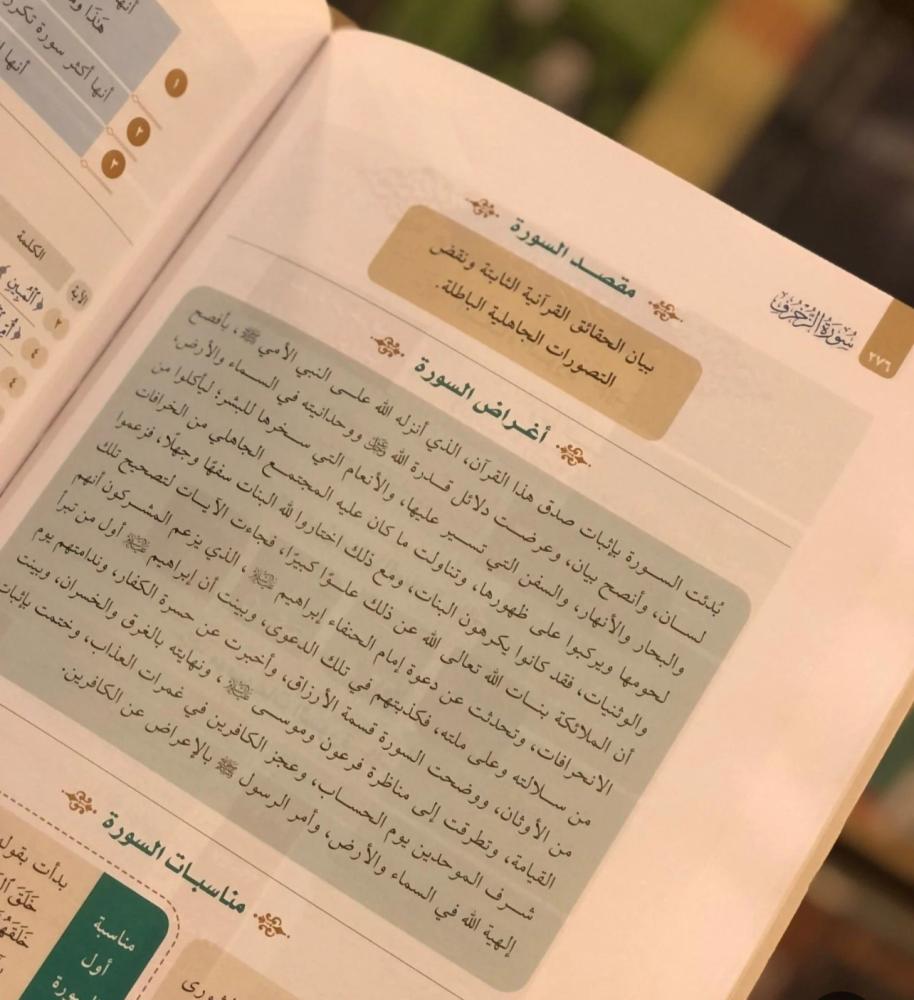 أنها
هَذَا
أنها أكثر سورة تكرر
أنها
١
٢
٣
الكلمة
الآية
﴿ٱلْمُبِينِ﴾
٢
٤
٤
سُورَةُ الزُّخْرُفِ
٢٧٦
مقصد السورة
بيان الحقائق القرآنية الثابتة ونقض
التصورات الجاهلية الباطلة.
أغراض السورة
بُدئت السورة بإثبات صدق هذا القرآن، الذي أنزله الله على النبي الأمي ﷺ، بأفصح
لسان، وأنصح بيان، وعرضت دلائل قدرة الله ﷻ ووحدانيته في السماء والأرض،
والبحار والأنهار، والسفن التي تسير عليها، والأنعام التي سخرها للبشر؛ ليأكلوا من
لحومها ويركبوا على ظهورها، وتناولت ما كان عليه المجتمع الجاهلي من الخرافات
والوثنيات، فقد كانوا يكرهون البنات، ومع ذلك اختاروا لله البنات سفهًا وجهلًا، فزعموا
أن الملائكة بنات الله تعالى الله عن ذلك علوًا كبيرًا، فجاءت الآيات لتصحيح تلك
الانحرافات، وتحدثت عن دعوة إمام الحنفاء إبراهيم ﷺ، الذي يزعم المشركون أنهم
من سلالته وعلى ملته، فكذبتهم في تلك الدعوى، وبينت أن إبراهيم ﷺ أول من تبرأ
من الأوثان، ووضحت السورة قسمة الأرزاق، وأخبرت عن حسرة الكفار، وندامتهم يوم
القيامة، وتطرقت إلى مناظرة فرعون وموسى ﷺ، ونهايته بالغرق والخسران، وبينت
شرف الموحدين يوم الحساب، وعجز الكافرين في غمرات العذاب، وختمت بإثبات
إلهية الله في السماء والأرض، وأمر الرسول ﷺ بالإعراض عن الكافرين.
مناسبات السورة
مناسبة
أول
بدأت بقوله